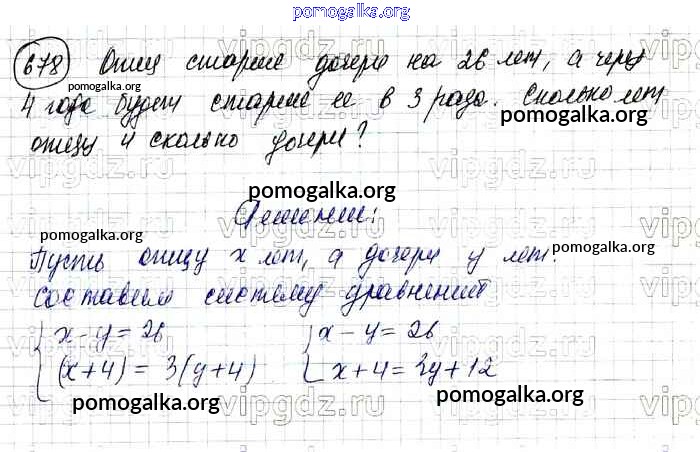 pomogalka.org
678 Отец старше дочери на 26 лет, а через
4 года будет старше ее в 3 раза. Сколько лет
отцу и сколько дочери?
Решение:
Пусть отцу x лет, а дочери y лет.
Составим систему уравнений
x - y = 26 x - y = 26
(x+4) = 3(y+4) x+4 = 3y+12
pomogalka.org
pomogalka.org
pomogalka.org
pomogalka.org
pomogalka.org
pomogalka.org
pomogalka.org
pomogalka.org
vipgdz.ru
vipgdz.ru
vipgdz.ru
vipgdz.ru